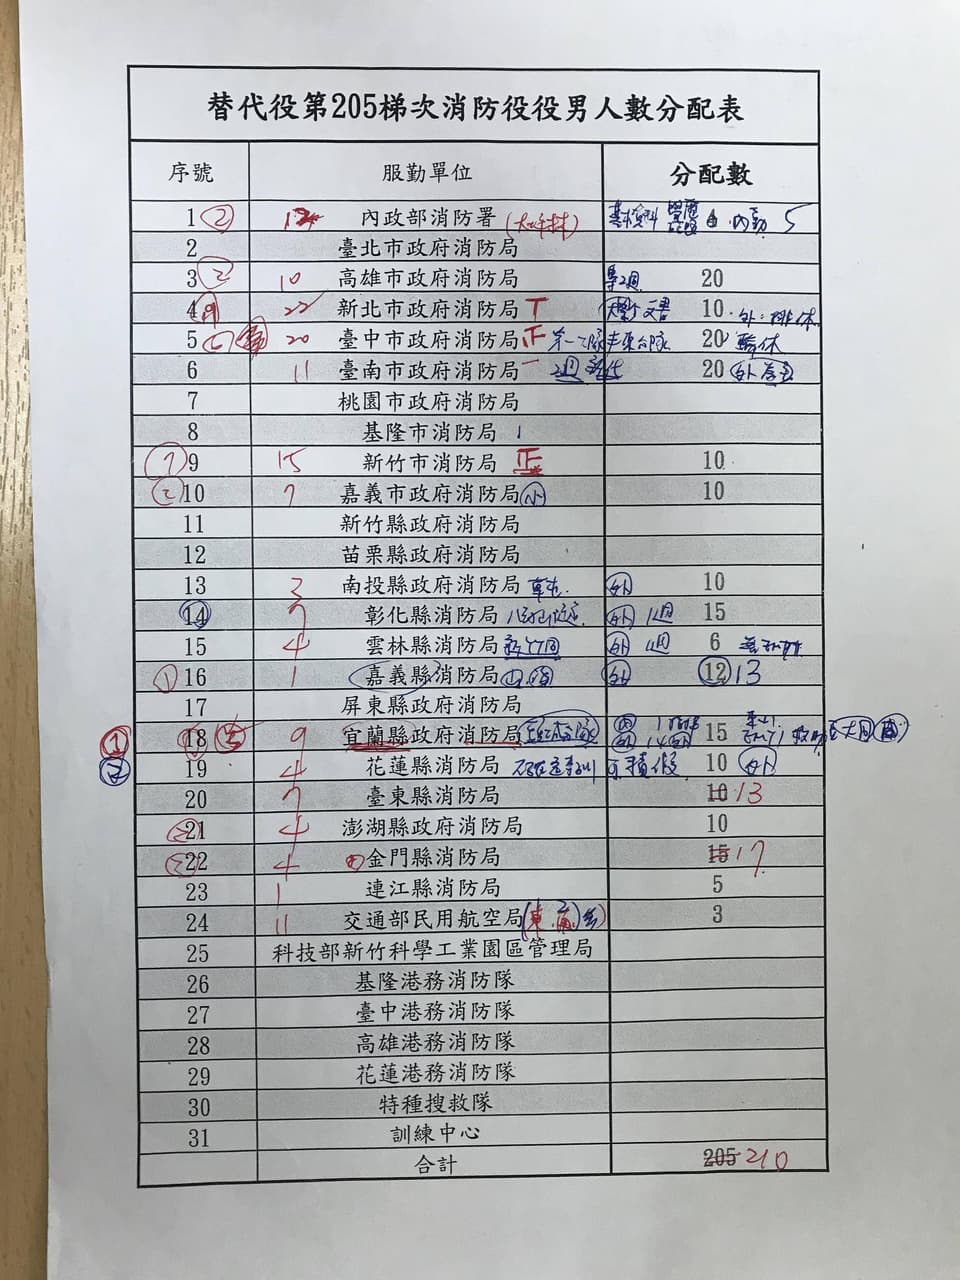 替代役第205梯次消防役役男人數分配表
序號 服勤單位 分配數
1 ② 內政部消防署 內勤 5
2 臺北市政府消防局
3 ② 10 高雄市政府消防局 20
4 22 新北市政府消防局 T 文書 10 外:排休
5 20 臺中市政府消防局 正 20 輪休
6 11 臺南市政府消防局 一 20 外
7 桃園市政府消防局
8 基隆市消防局
⑦ 9 15 新竹市消防局 正 10
② 10 7 嘉義市政府消防局 小 10
11 新竹縣政府消防局
12 苗栗縣政府消防局
13 3 南投縣政府消防局 外 10
14 7 彰化縣消防局 外 1週 15
15 4 雲林縣消防局 外 週 6
① 16 1 嘉義縣消防局 外 12 13
17 屏東縣政府消防局
① 18 9 宜蘭縣政府消防局 內 外 15
② 19 4 花蓮縣消防局 可積假 10 外
20 7 臺東縣消防局 10 13
21 4 澎湖縣政府消防局 10
22 4 金門縣消防局 15 17
23 1 連江縣消防局 5
24 11 交通部民用航空局 3
25 科技部新竹科學工業園區管理局
26 基隆港務消防隊
27 臺中港務消防隊
28 高雄港務消防隊
29 花蓮港務消防隊
30 特種搜救隊
31 訓練中心
合計 205 210